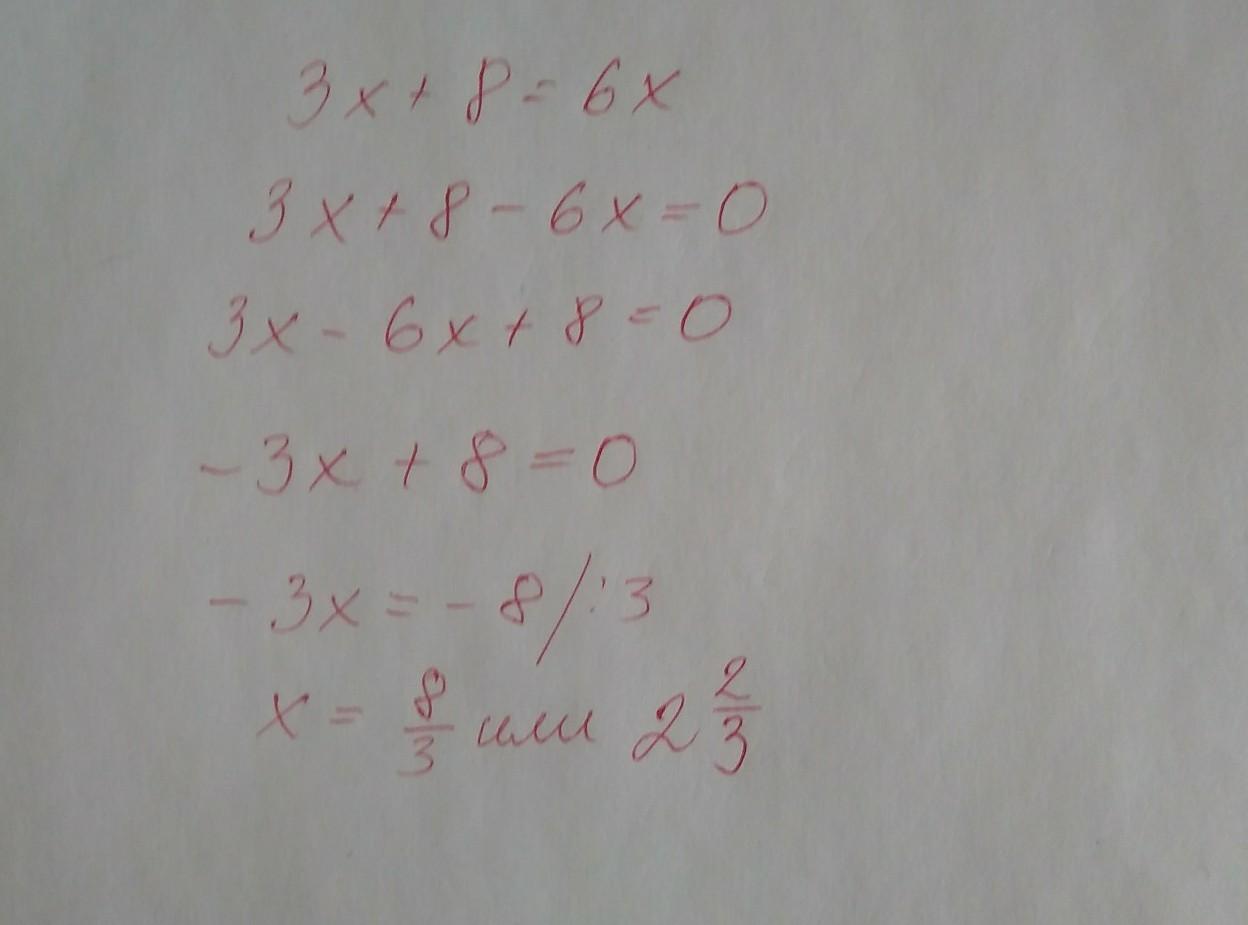 3x + 8 = 6x
3x + 8 - 6x = 0
3x - 6x + 8 = 0
- 3x + 8 = 0
- 3x = - 8 / : 3
x = 8/3 или 2 2/3